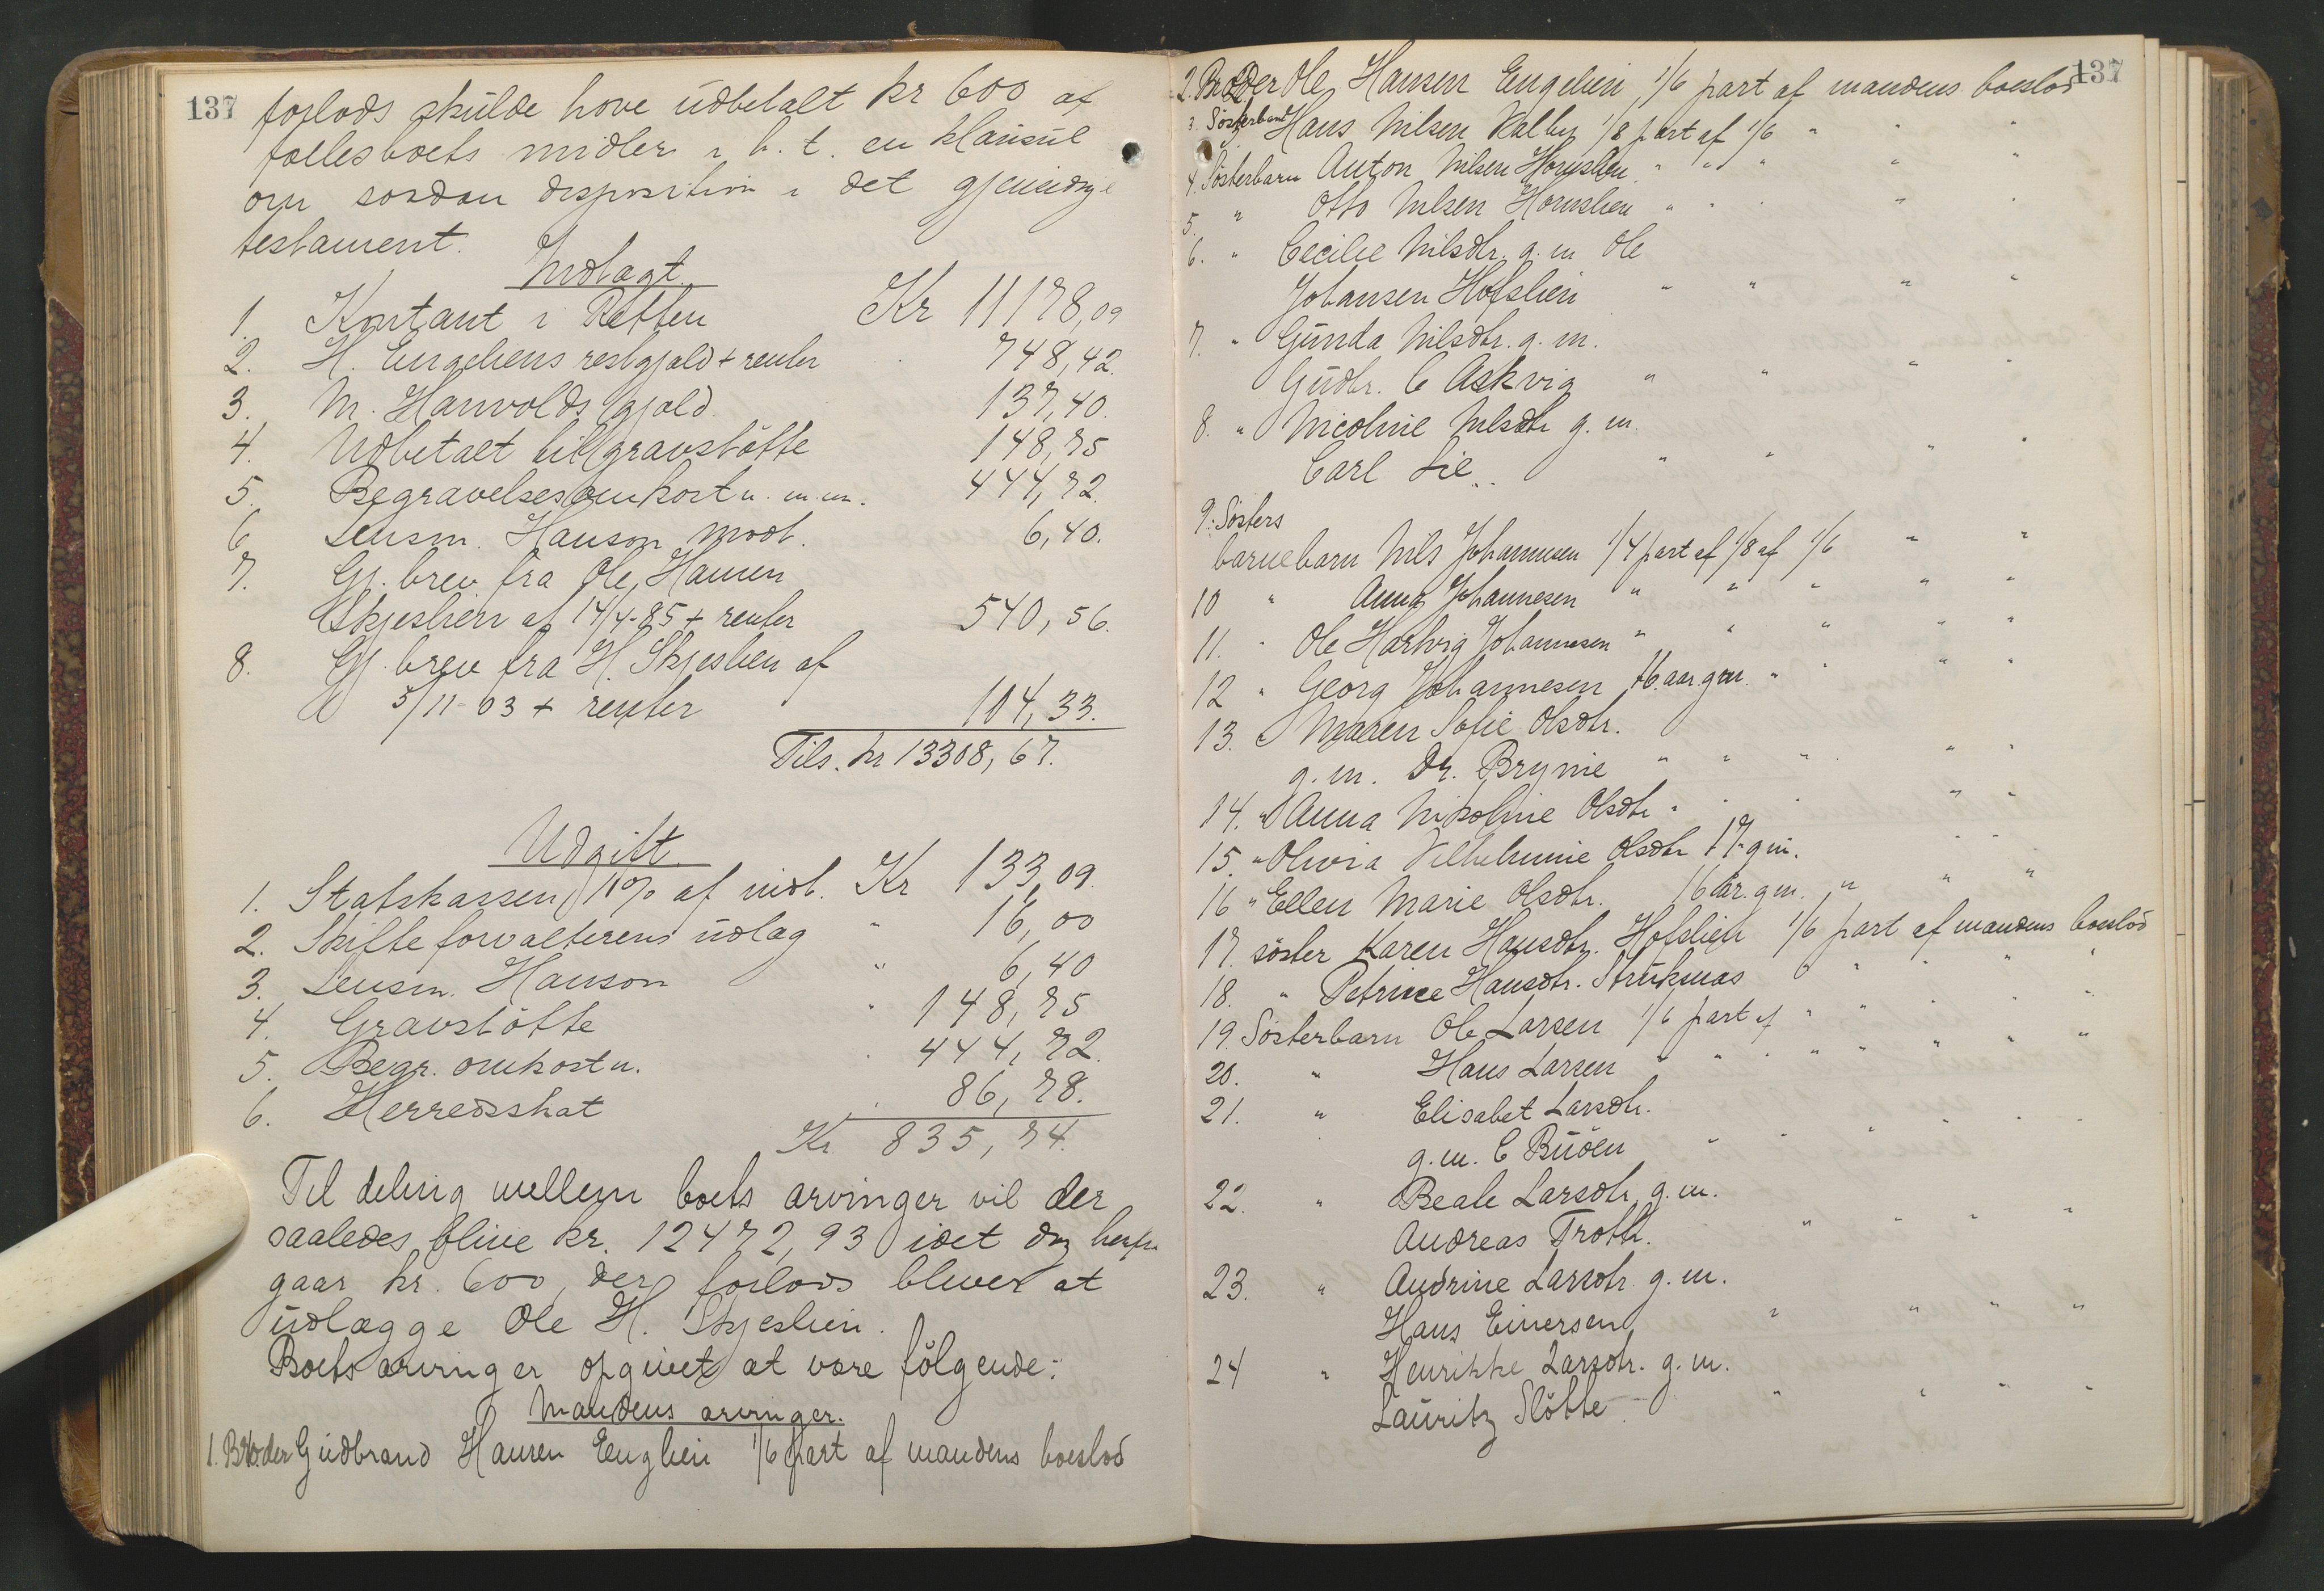 137
forlods skulde have udbetalt kr 600 af
fællesboets midler i h. t. en klausul
om saadan disposition i det gjensidige
testament.
Indtægt.
1. Kontant i Retten Kr 11178,09
2. H. Engeliens restgjæld + renter " 748,42.
3. M. Hanvolds gjæld. 137,40.
4. Udbetalt til gravstötte 148,75
5. Begravelsesomkostn. m.m. 444,72.
6 Lensm. Hanson modt. 6,40.
7. Gj. brev fra Ole Hansen
Skjeslien af 14/4-85 + renter 540,56.
8. Gj. brev fra H. Skjeslien af
5/11-03 + renter 104,33.
Tils. kr 13308,67.
Udgift.
1. Statskassen 1% af indt. Kr 133,09.
2. Skifteforvalterens udlæg " 16,00
3. Lensm. Hanson " 6,40
4. Gravstötte " 148,75
5. Begr. omkostn. " 444,72.
6. Herredsskat " 86,78.
Kr 835,74.
Til deling mellem boets arvinger vil der
saaledes blive kr. 12472,93 idet dog herfra
gaar kr. 600, der forlods bliver at
udlægge Ole H. Skjeslien.
Boets arvinger opgives at være fölgende:
Mandens arvinger.
1. Broder Gudbrand Hansen Englien 1/6 part af mandens boeslod
137
2. Broder Ole Hansen Engelien, 1/6 part af mandens boeslod
3. Sösterbarn Hans Nilsen Kalby 1/8 part af 1/6 " " "
4. Sösterbarn Anton Nilsen Hornslien " " " " "
5. " Otto Nilsen Hornslien " " " " "
6. " Cecilie Nilsdtr. g. m Ole
Johansen Hofslien " " " "
7. " Gunda Nilsdtr. g. m.
Gudbr. C Askvig " " " "
8. " Nicoline Nilsdtr g. m.
Carl Lie " " " "
9. Sösters
barnebarn Nils Johannesen 1/4 part af 1/8 af 1/6 " "
10 " Anna Johannesen " " " " "
11. " Ole Hartvig Johannesen " " " " "
12 " Georg Johannesen 16 aar. gm. " " " "
13. " Maren Sofie Olsdtr.
g. m. Dr. Brynie " " " " "
14. " Anna Nikoline Olsdtr " " " " "
15. " Olivia Vilhelmine Olsdtr 17 " gm. " "
16 " Ellen Marie Olsdtr. 16 ar. gm. " " "
17. söster Karen Hansdtr. Hofslien 1/6 part af mandens boeslod
18. " Petrine Hansdtr. Struksnæs " " " " "
19. Sösterbarn Ole Larsen 1/6 part af " " " " "
20. " Hans Larsen " " " " " " " "
21. " Elisabet Larsdtr.
g. m. C Buöen " " " " "
22. " Beate Larsdtr g. m.
Andreas Troth. " " " "
23. " Andrine Larsdtr. g. m.
Hans Einersen " " " "
24 " Henrikke Larsdtr. g. m.
Lauritz Slötte " " " "